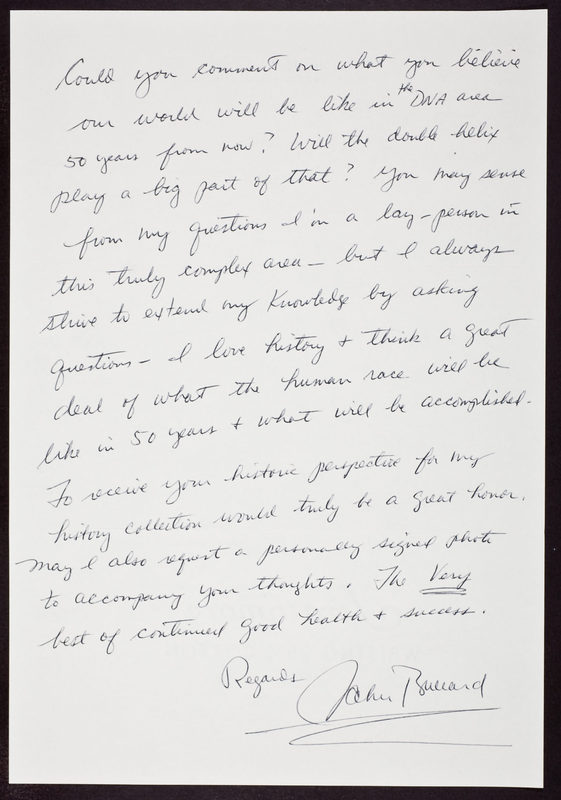 Could you comment on what you believe
our world will be like in the DNA area
50 years from now? Will the double helix
play a big part of that? You may sense
from my questions I'm a lay-person in
this truly complex area - but I always
strive to extend my knowledge by asking
questions - I love history + think a great
deal of what the human race will be
like in 50 years + what will be accomplished.
To receive your historic perspective for my
history collection would truly be a great honor.
May I also request a personally signed photo
to accompany your thoughts. The Very
best of continued good health + success.
Regards
John Bullard